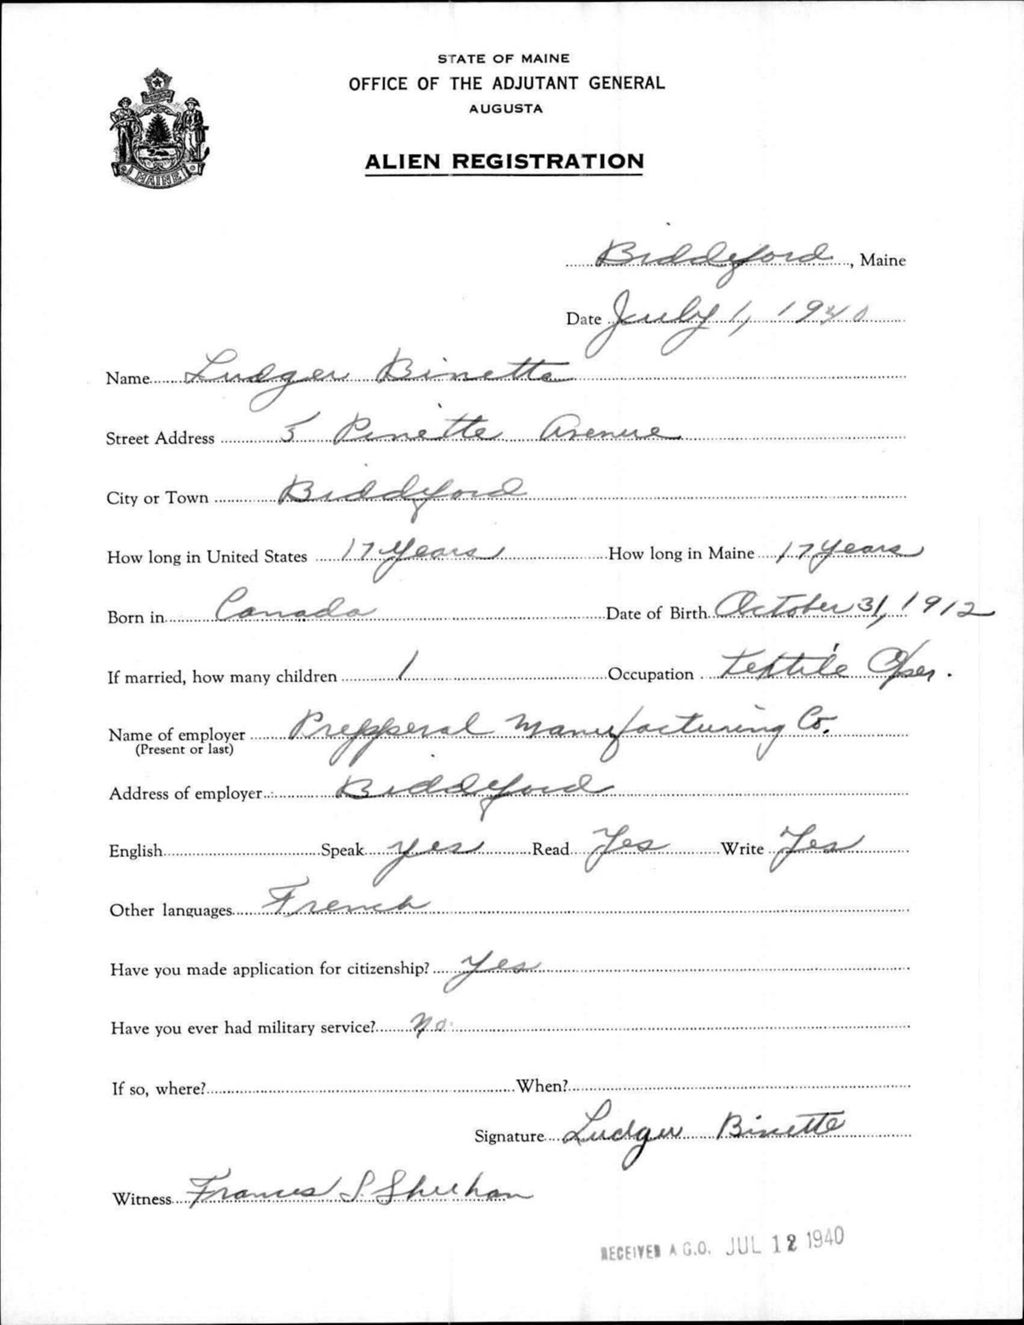 STATE OF MAINE
OFFICE OF THE ADJUTANT GENERAL
AUGUSTA
ALIEN REGISTRATION
MAINE
Biddeford, Maine
Date July 1, 1940
Name Ludger Binette
Street Address 5 Pinette Avenue
City or Town Biddeford
How long in United States 17 years How long in Maine 17 years
Born in Canada Date of Birth October 31, 1912
If married, how many children 1 Occupation Textile Oper.
Name of employer Prepperal Manufacturing Co.
(Present or last)
Address of employer Biddeford
English Speak yes Read Yes Write Yes
Other languages French
Have you made application for citizenship? Yes
Have you ever had military service? No
If so, where? When?
Signature Ludger Binette
Witness Frances S. Sheehan
RECEIVED A.G.O. JUL 12 1940